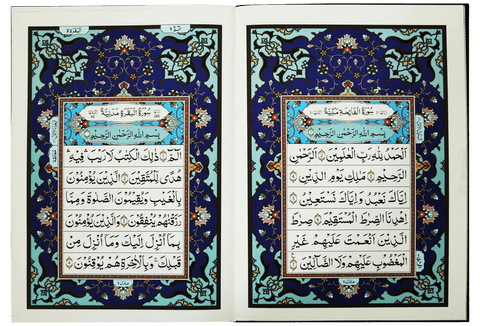 سُورَةُ الْفَاتِحَةِ مَكِّيَّةٌ
بِسْمِ اللهِ الرَّحْمٰنِ الرَّحِيمِ
اَلْحَمْدُ لِلّٰهِ رَبِّ الْعٰلَمِينَ ۝ الرَّحْمٰنِ
الرَّحِيمِ ۝ مٰلِكِ يَوْمِ الدِّينِ ۝
اِيَّاكَ نَعْبُدُ وَاِيَّاكَ نَسْتَعِينُ ۝
اِهْدِنَا الصِّرٰطَ الْمُسْتَقِيمَ ۝ صِرٰطَ
الَّذِينَ اَنْعَمْتَ عَلَيْهِمْ غَيْرِ
الْمَغْضُوبِ عَلَيْهِمْ وَلَا الضَّالِّينَ ۝
البقرة ٢
سُورَةُ الْبَقَرَةِ مَدَنِيَّةٌ
بِسْمِ اللهِ الرَّحْمٰنِ الرَّحِيمِ
الٓمٓ ۝ ذٰلِكَ الْكِتٰبُ لَا رَيْبَ فِيهِ
هُدًى لِلْمُتَّقِينَ ۝ الَّذِينَ يُؤْمِنُونَ
بِالْغَيْبِ وَيُقِيمُونَ الصَّلٰوةَ وَمِمَّا
رَزَقْنٰهُمْ يُنْفِقُونَ ۝ وَالَّذِينَ يُؤْمِنُونَ
بِمَا اُنْزِلَ اِلَيْكَ وَمَا اُنْزِلَ مِنْ
قَبْلِكَ وَبِالْاٰخِرَةِ هُمْ يُوقِنُونَ ۝